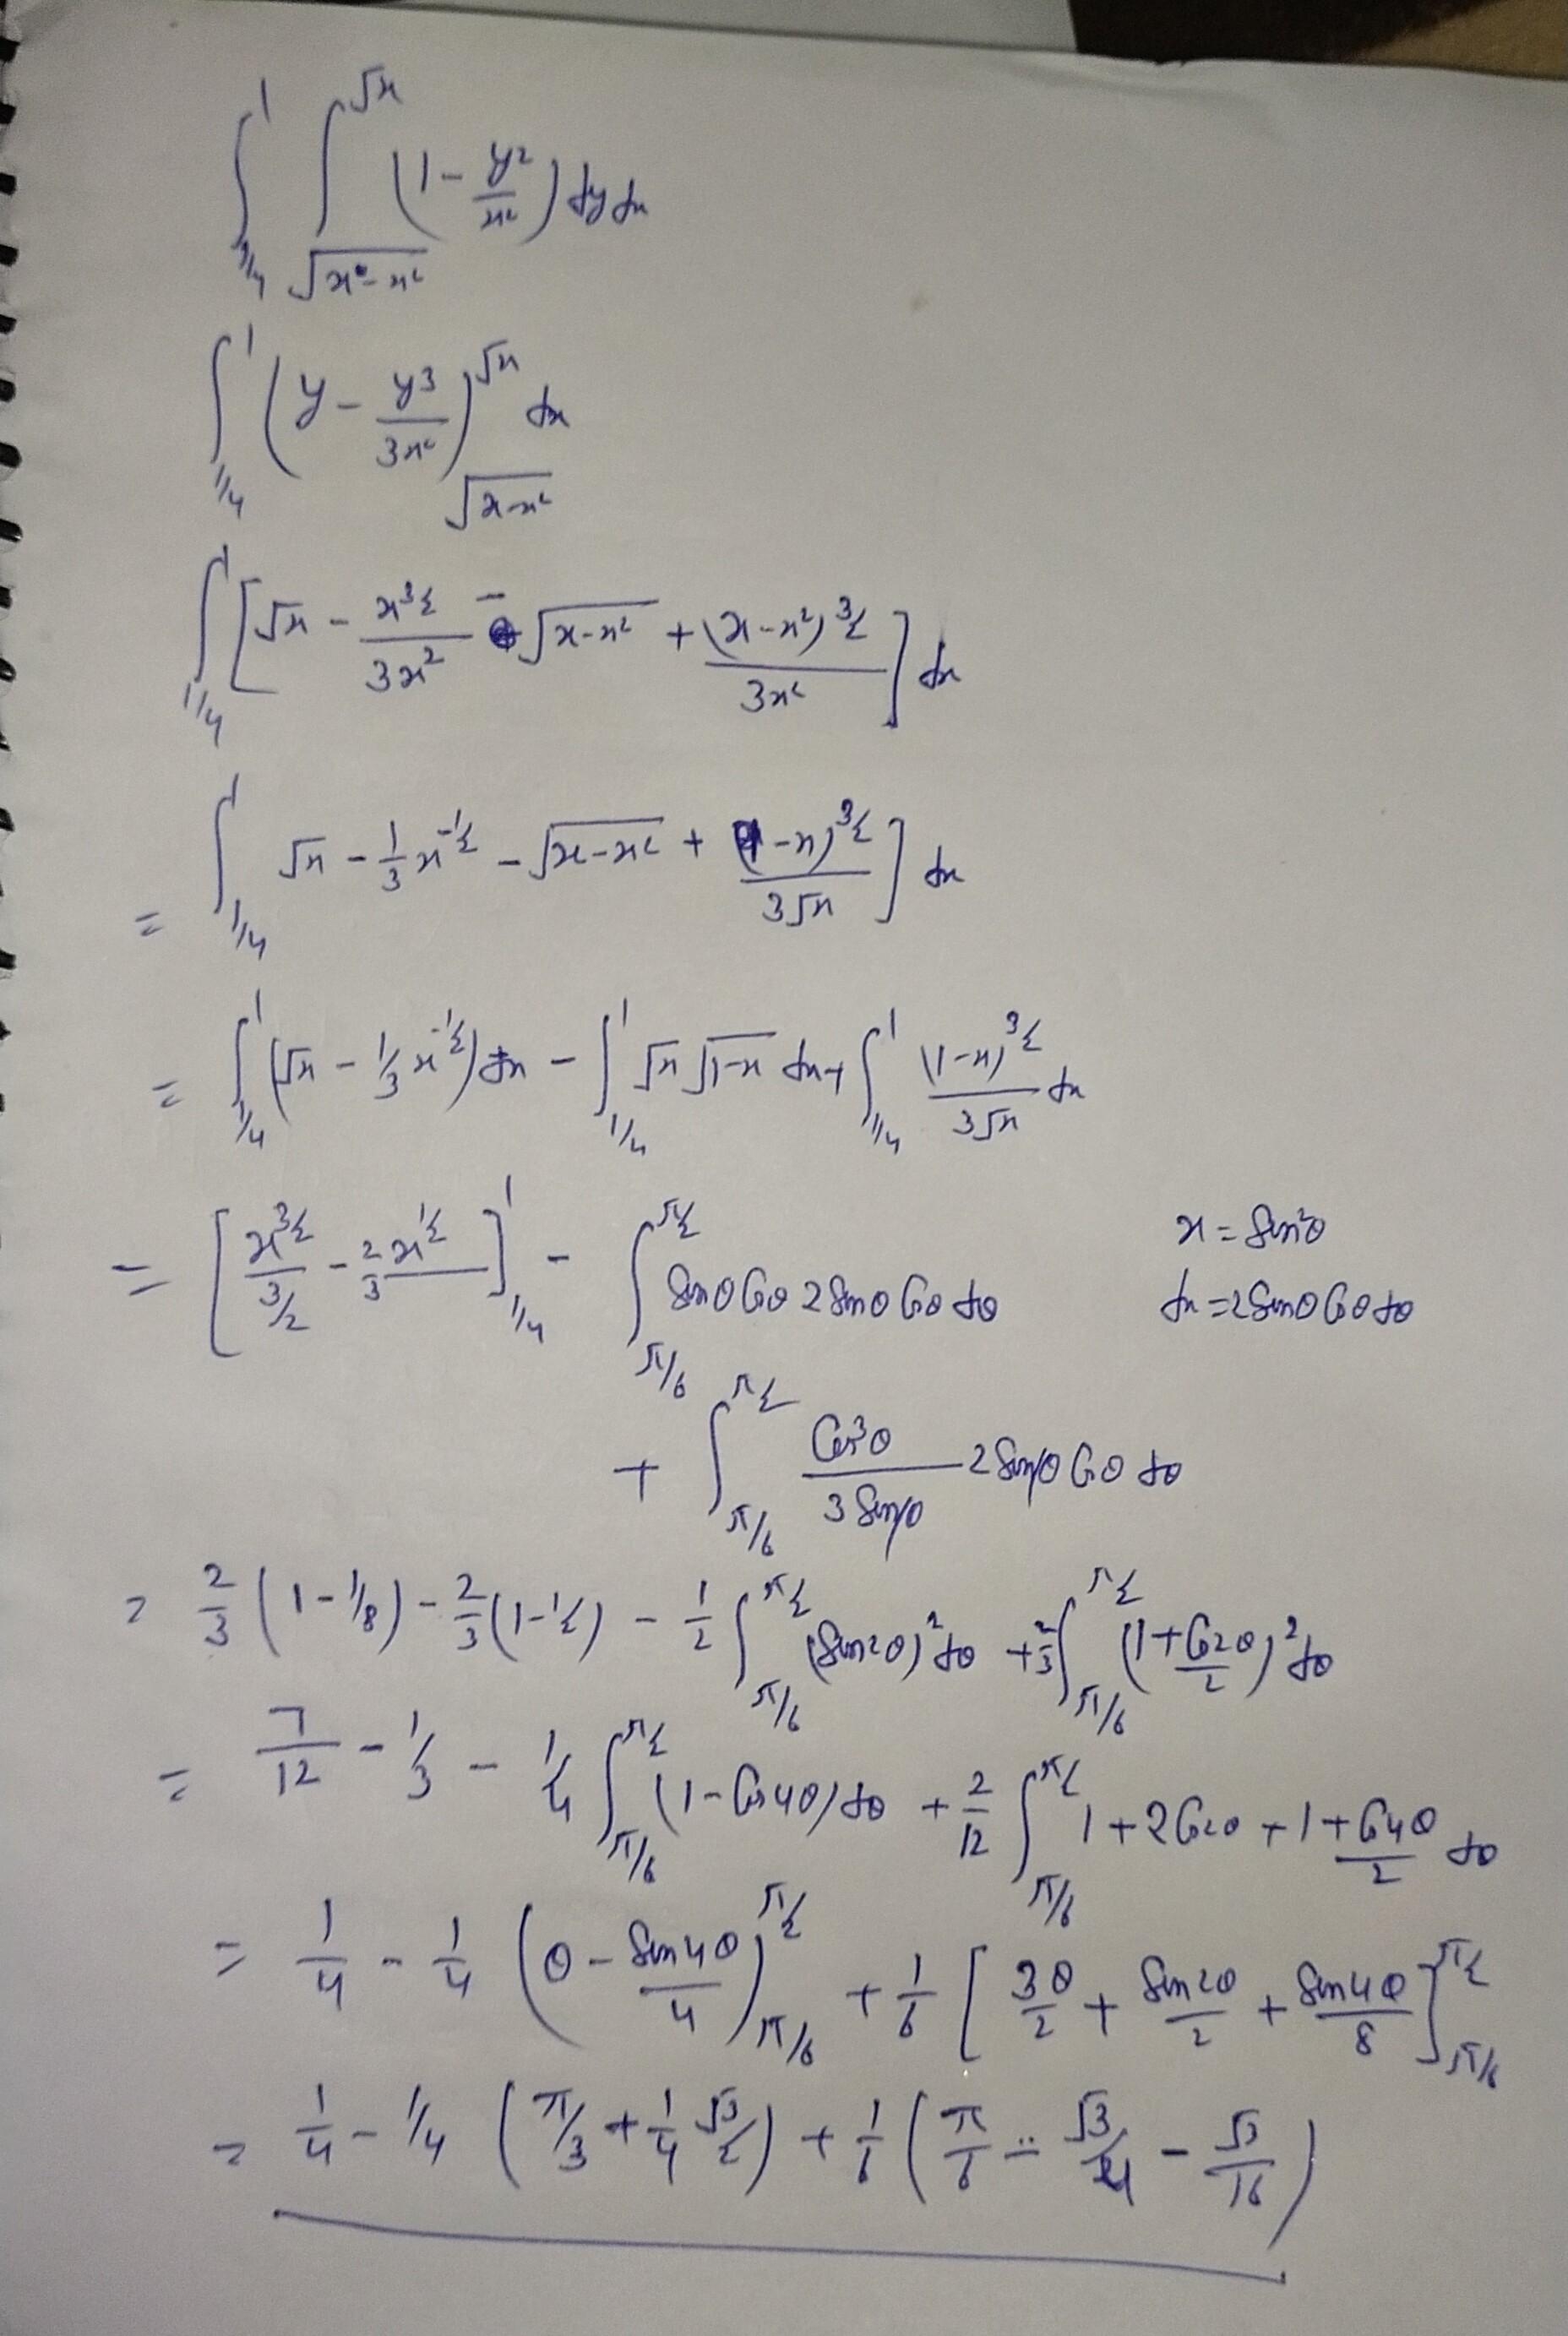 ∫_{1/4}^{1} ∫_{√(x-x²)}^{√x} (1 - y²/x²) dy dx
∫_{1/4}^{1} (y - y³/3x²)_{√(x-x²)}^{√x} dx
∫_{1/4}^{1} [√x - x^{3/2}/3x² - √(x-x²) + (x-x²)^{3/2}/3x²] dx
= ∫_{1/4}^{1} √x - 1/3 x^{-1/2} - √(x-x²) + (1-x)^{3/2}/3√x ] dx
= ∫_{1/4}^{1} (√x - 1/3 x^{-1/2}) dx - ∫_{1/4}^{1} √x √(1-x) dx + ∫_{1/4}^{1} (1-x)^{3/2}/3√x dx
= [x^{3/2}/(3/2) - 2/3 x^{1/2}]_{1/4}^{1} - ∫_{π/6}^{π/2} Sinθ Cosθ 2 Sinθ Cosθ dθ
x = Sin²θ
dx = 2 Sinθ Cosθ dθ
+ ∫_{π/6}^{π/2} Cos³θ/3 Sinθ 2 Sinθ Cosθ dθ
= 2/3 (1 - 1/8) - 2/3 (1 - 1/2) - 1/2 ∫_{π/6}^{π/2} (Sin2θ)² dθ + 2/3 ∫_{π/6}^{π/2} (1+Cos2θ/2)² dθ
= 7/12 - 1/3 - 1/4 ∫_{π/6}^{π/2} (1 - Cos4θ) dθ + 2/12 ∫_{π/6}^{π/2} 1 + 2Cos2θ + 1+Cos4θ/2 dθ
= 1/4 - 1/4 (θ - Sin4θ/4)_{π/6}^{π/2} + 1/6 [3θ/2 + Sin2θ/2 + Sin4θ/8]_{π/6}^{π/2}
= 1/4 - 1/4 (π/3 + 1/4 √3/2) + 1/6 (π/6 - √3/4 - √3/16)